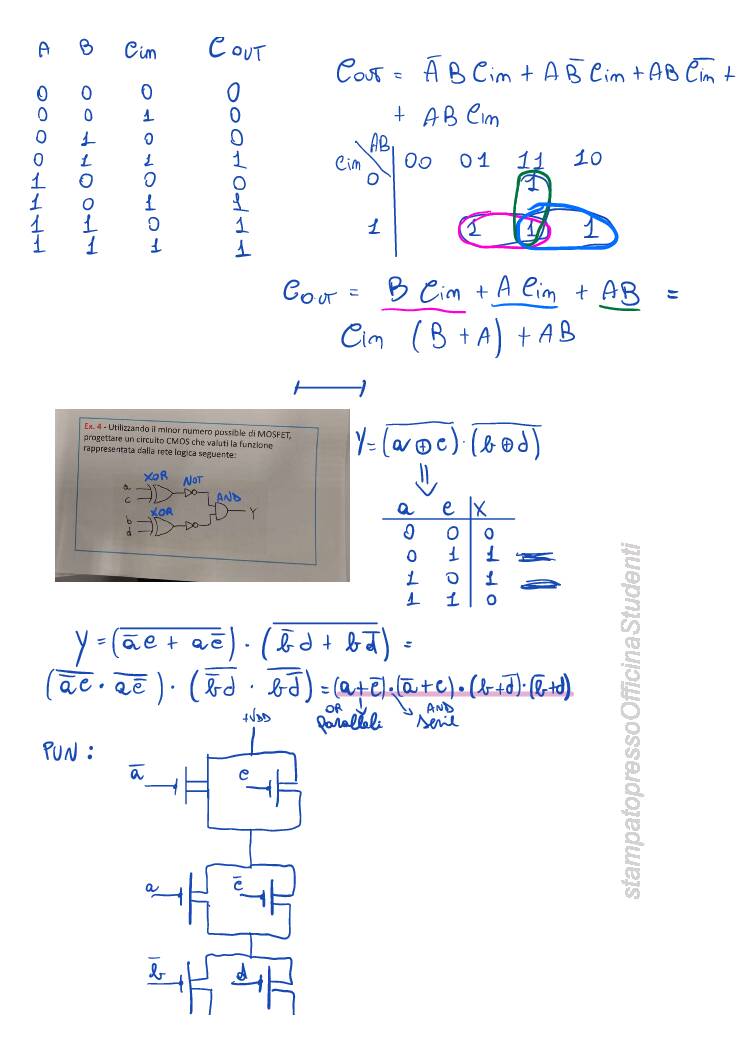 A B Cim COUT
0 0 0 0
0 0 1 0
0 1 0 0
0 1 1 1
1 0 0 0
1 0 1 1
1 1 0 1
1 1 1 1
Cout = A̅ B Cim + A B̅ Cim + A B C̅i̅m̅ +
+ A B Cim
AB
Cim 00 01 11 10
0 1
1 1 1 1
COUT = B Cim + A Cim + AB =
Cim (B + A) + AB
Ex. 4 - Utilizzando il minor numero possibile di MOSFET,
progettare un circuito CMOS che valuti la funzione
rappresentata dalla rete logica seguente:
XOR NOT
a
c
AND
Y
XOR
b
d
Y = (a̅ ̅⊕̅ ̅c̅) · (b̅ ̅⊕̅ ̅d̅)
a c x
0 0 0
0 1 1
1 0 1
1 1 0
Y = (\overline{a̅c + ac̅}) · (\overline{b̅d + bd̅}) =
(\overline{a̅c} · \overline{ac̅}) · (\overline{b̅d} · \overline{bd̅}) = (a+c̅)·(a̅+c)·(b+d̅)·(b̅+d)
OR AND
Paralleli serie
+VDD
PUN :
a̅ c
a c̅
b̅ d
stampatopressoOfficinaStudenti